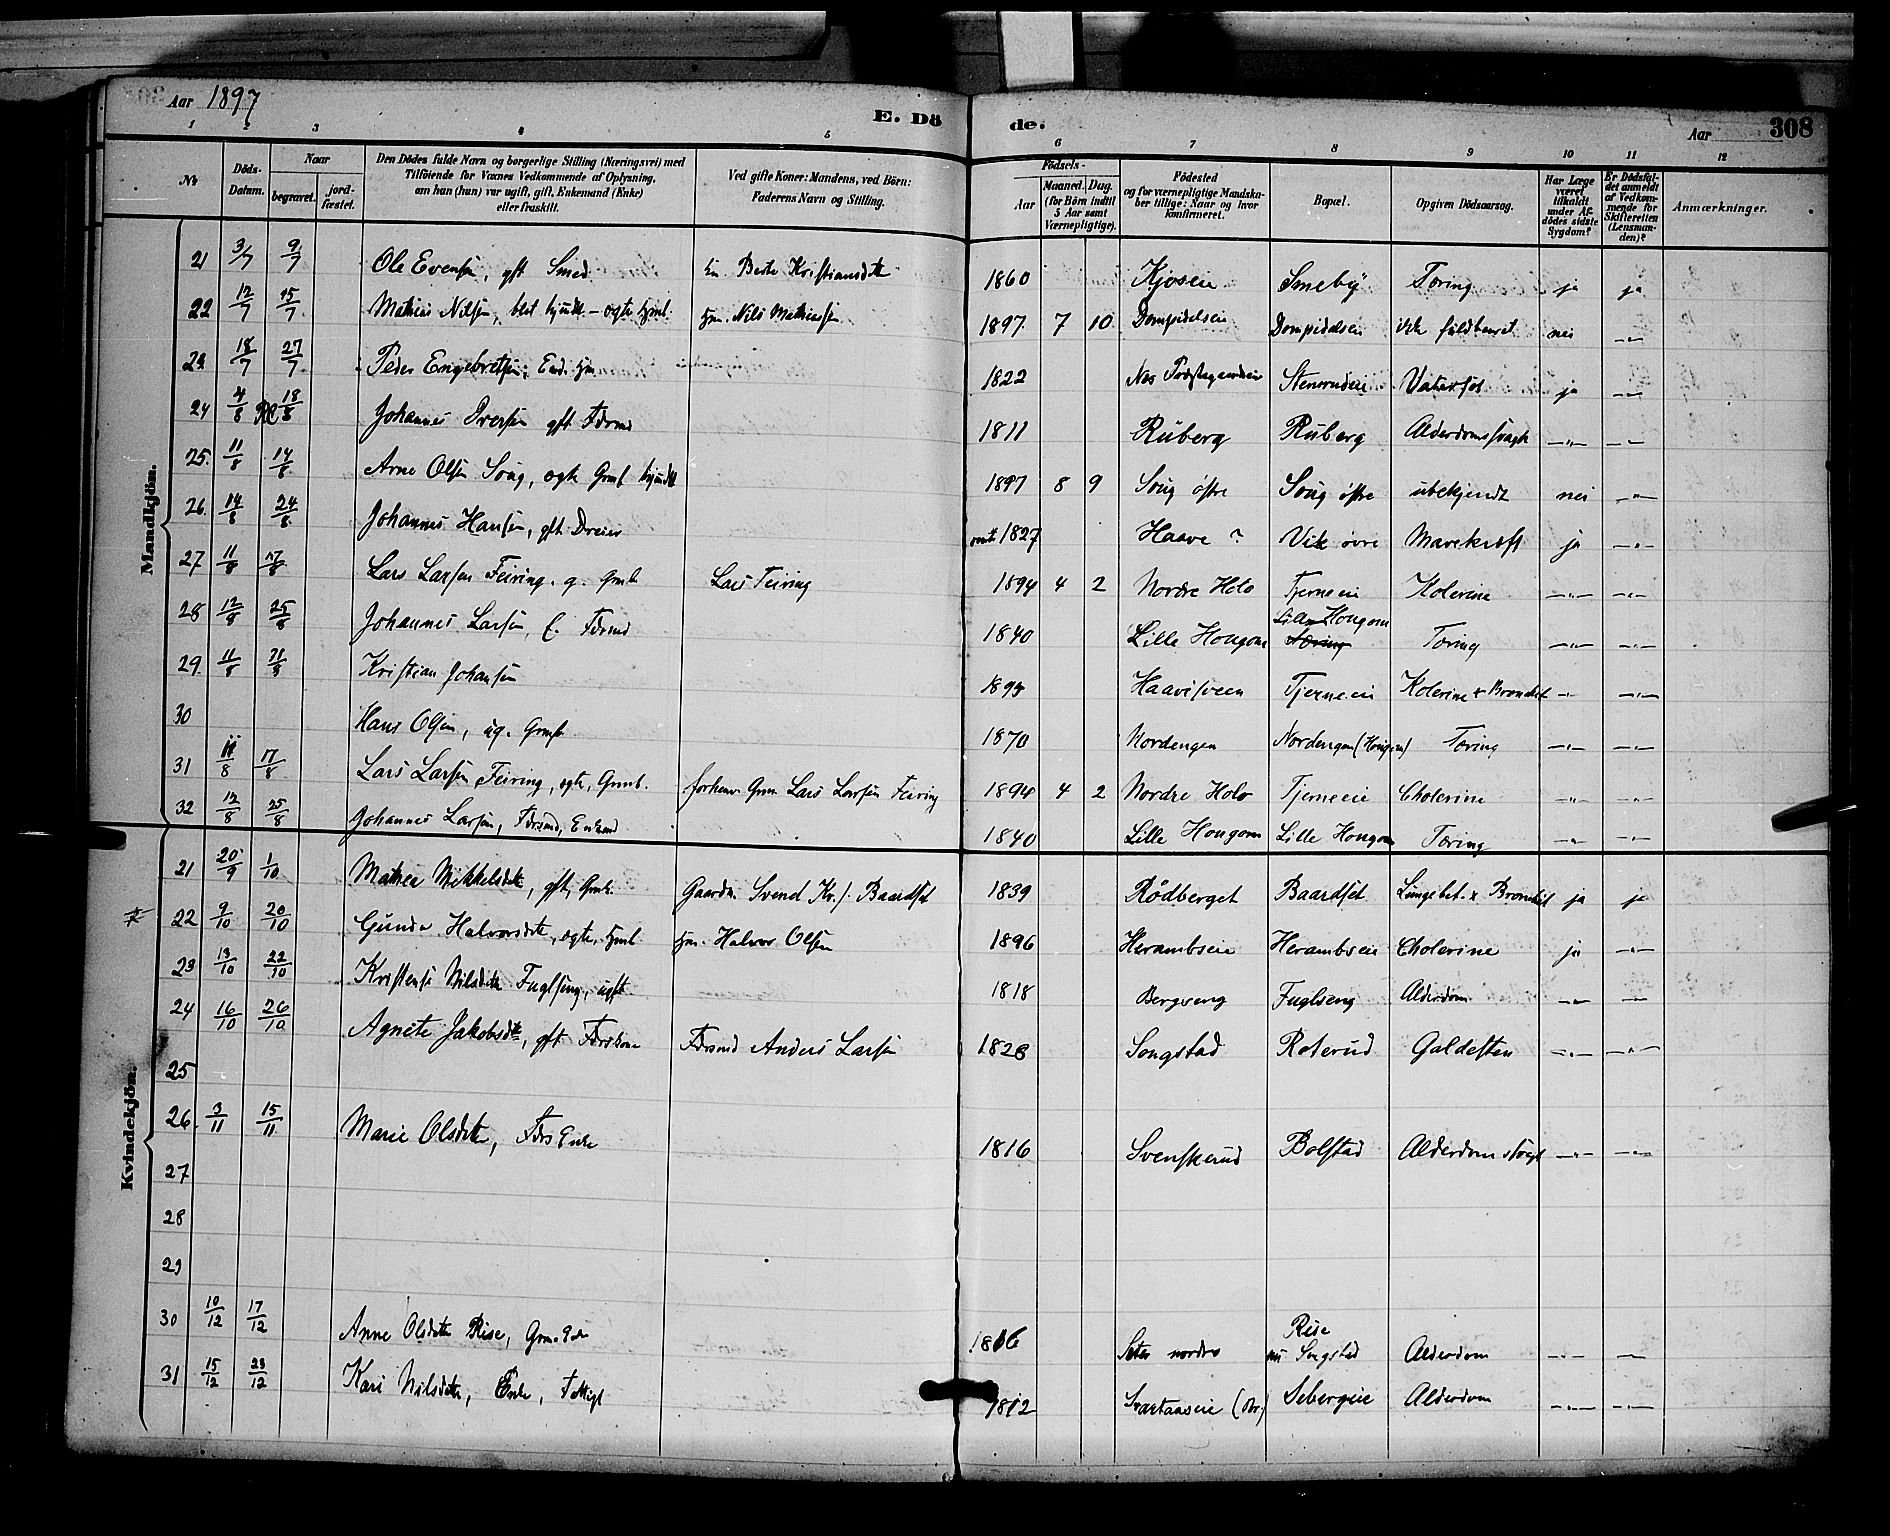 Aar 1897
E. Dö de.
Aar 308
1 2 3 4 5 6 7 8 9 10 11 12
№ Döds-Datum. Naar begravet. jord-fæstet. Den Dödes fulde Navn og borgerlige Stilling (Næringsvei) med Tilföiende for Voxnes Vedkommende af Oplysning, om han (hun) var ugift, gift, Enkemand (Enke) eller fraskilt. Ved gifte Koner: Mandens, ved Börn: Faderens Navn og Stilling. Födsels- Aar Maaned. Dag. (for Börn indtil 5 Aar samt Værnepligtige). Födested og for værnepligtige Mandskaber tillige: Naar og hvor konfirmeret. Bopæl. Opgiven Dödsaarsag. Har Læge været tilkaldt under Afdödes sidste Sygdom? Er Dödsfaldet anmeldt af Vedkommende for Skifteretten (Lensmanden)? Anmærkninger.
Mandkjön.
21 3/7 9/7 Ole Evensen, gft Smed Berte Kristiansdtr 1860 Kjoseie Smeby Tæring ja ja
22 12/7 15/7 Mathias Nilsen, Nils Mathiassen 1897 7 10 Dompidalseie Dompidalseie ikke fuldbaaret nei -"-
23 18/7 27/7 Peder Engebretsen, 1822 Stenerudeie Vatersot ja -"-
24 4/8 18/8 Johannes Iversen gft Fdrmd 1811 Ruberg Ruberg Alderdomssvagh -"- -"-
25. 11/8 14/8 Arne Olsen Soug, ogte Grmb 1897 8 9 Soug östre Soug östre ubekjendt nei -"-
26. 14/8 24/8 Johannes Hansen, gft Dreier omt 1827 Haave ? Vik övre Mavekræft ja -"-
27 11/8 17/8 Lars Larsen Feiring. g. Grmb Lars Feiring 1894 4 2 Nordre Holo Tjerneeie Kolerine -"- -"-
28 12/8 25/8 Johannes Larsen, E. Fdrmd 1840 Lille Hougom Lille Hougom Tæring -"- -"-
29. 11/8 21/8 Kristian Johansen Haavisveen Tjerneeie Kolerine & Bronchit -"- -"-
30 Hans Olsen, ug. Grmb 1870 Nordengen Nordengen (Hougom) Tæring -"- -"-
31 11/8 17/8 Lars Larsen Feiring, egte, Grmb. forhenv Grm Lars Larsen Feiring 1894 4 2 Nordre Holo Tjerneeie Cholerine -"- -"-
32 12/8 25/8 Johannes Larsen, Fdrmd, Enkmd 1840 Lille Hougom Lille Hougom Tæring -"- -"-
Kvindekjön.
21 20/9 1/10 Mathea Mikkelsdtr, gft, Grmk. Gaardm. Svend Kr.s. Baardset 1839 Rödberget Baardset Lungebet. & Bronchit ja ja
22 9/10 20/10 Gunda Halvorsdtr, egte, Hmb Hm. Halvor Olsen 1896 Herambseie Herambseie Cholerine ja -"-
23 13/10 22/10 Kristense Nilsdtr Fuglseng, ugift 1818 Bergseng Fuglseng Alderdom -"- -"-
24 16/10 26/10 Agnete Jakobsdtr, gft Fdrskone Fdrmd Anders Larsen 1828 Songstad Roterud Galdesten -"- -"-
25
26 3/11 15/11 Marie Olsdtr, Fdrs Enke 1816 Svenskerud Bolstad Alderdomssvagh -"- -"-
27
28
29
30 10/12 17/12 Anne Olsdatter Rise, 1816 Sæter nordre Rise nu Songstad Alderdom -"- -"-
31 15/12 23/12 Kari Nilsdtr, Enke, Fattigl 1812 Svartaaseie Sebergeie Alderdom -"- -"-